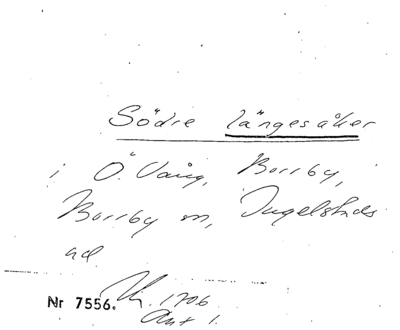 Södre längesåker
i Ö. Vång, Borrby,
Borrby sn, Ingelstads
hd
Nr 7556. 1706
Akt 1.